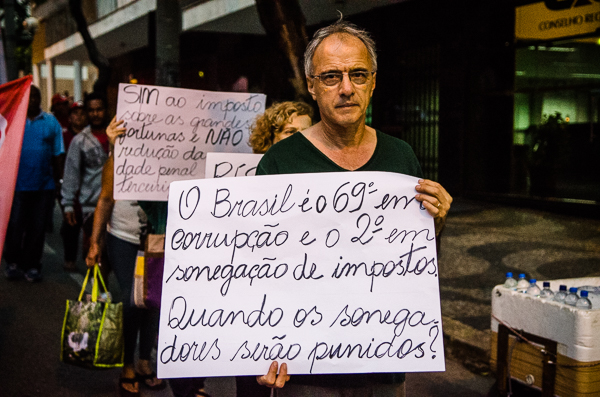 CONSELHO REG
SIM ao imposto
sobre as grandes
fortunas e NÃO
redução da
dade penal
O Brasil é o 69º em
corrupção e o 2º em
sonegação de impostos.
Quando os sonega-
dores serão punidos?